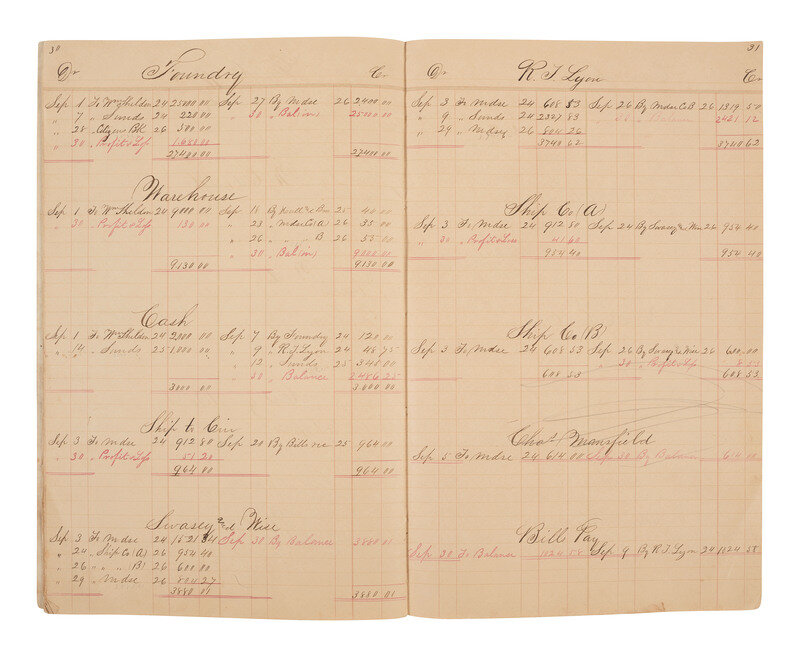 30
Dr Foundry Cr
Sep 1 To Wm Sheldon 24 25000.00 Sep 27 By Mdse 26 2400.00
" 7 " Sunds 24 220.00 " 30 " Balion 25000.00
" 28 Citizen BK 26 500.00
" 30 Profit & Loss
27400.00 27400.00
Warehouse
Sep 1 To Wm Sheldon 24 9000.00 Sep 18 By 25 40.00
" 30 Profit & Loss 130.00 " 23 " Mdse Co (A) 26 35.00
" 26 " " " B 26 55.00
" 30 " Balion 9000.00
9130 00 9130.00
Cash
Sep 1 To Wm Sheldon 24 2000.00 Sep 7 By Foundry 24 120.00
" 14 " Sunds 25 1000.00 " 9 " R.T. Lyon 24 48.75
" 12 " Sunds 25 345.00
" 30 " Balance 2486.25
3000 00 3000.00
Ship to Cin
Sep 3 To Mdse 24 912 80 Sep 20 By Bills rec 25 964.00
" 30 Profit & Loss 51 20
964 00 964.00
Swasey and Wise
Sep 3 To Mdse 24 1521 34 Sep 30 By Balance 3880 01
" 24 " Ship Co (A) 26 954 40
" 26 " " " B) 26 600.00
" 29 " Mdse 26 804 27
3880 01 3880 01
31
Dr R T Lyon Cr
Sep 3 To Mdse 24 608 53 Sep 26 By Mdse Co B 26 1319.50
" 9 " Sunds 24 2327 83 " 30 " Balance 2421 12
" 29 " Mdse 26 804 26
3740 62 3740 62
Ship Co (A)
Sep 3 To Mdse 24 912 80 Sep 24 By Swasey & Wise 26 954 40
" 30 " Profit & Loss 41 60
954 40 954 40
Ship Co B
Sep 3 To Mdse 24 608 53 Sep 26 By Swasey & Wise 26 600.00
" 30 " Profit & Loss 8 53
608 53 608 53
Chas Mansfield
Sep 5 To Mdse 24 614 00 Sep 30 By Balance 614 00
Bills Pay
Sep 30 To Balance 1024 58 Sep 9 By R.T. Lyon 24 1024 58